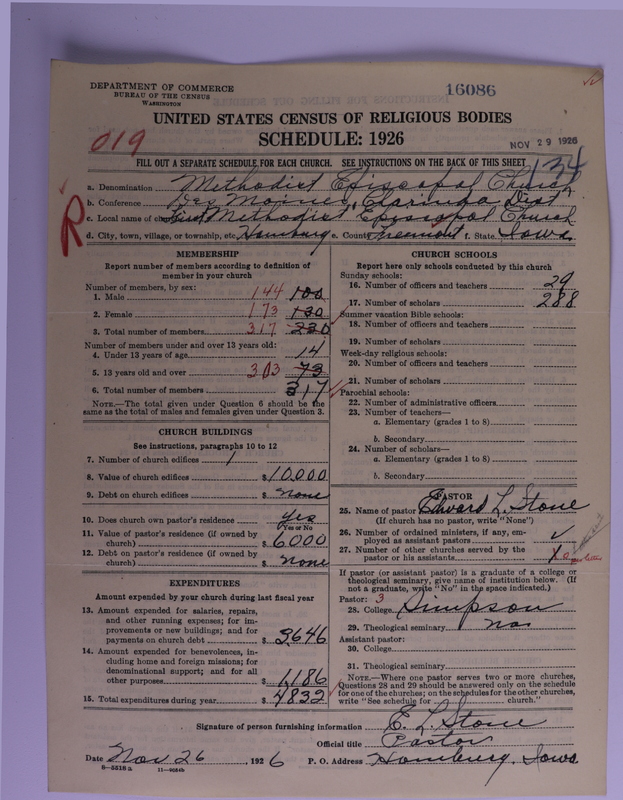 DEPARTMENT OF COMMERCE
BUREAU OF THE CENSUS
WASHINGTON
16086
UNITED STATES CENSUS OF RELIGIOUS BODIES
SCHEDULE: 1926
NOV 29 1926
019
FILL OUT A SEPARATE SCHEDULE FOR EACH CHURCH. SEE INSTRUCTIONS ON THE BACK OF THIS SHEET
134
a. Denomination Methodist Episcopal Church
b. Conference Des Moines, Clarinda Dist
c. Local name of church First Methodist Episcopal Church
d. City, town, village, or township, etc. Hamburg e. County Fremont f. State Iowa
R
MEMBERSHIP
Report number of members according to definition of
member in your church
Number of members, by sex:
1. Male 144 100
2. Female 173 130
3. Total number of members 317 230
Number of members under and over 13 years old:
4. Under 13 years of age 14
5. 13 years old and over 303 73
6. Total number of members 317
NOTE.—The total given under Question 6 should be the
same as the total of males and females given under Question 3.
CHURCH BUILDINGS
See instructions, paragraphs 10 to 12
7. Number of church edifices 1
8. Value of church edifices $ 10000
9. Debt on church edifices $ none
10. Does church own pastor's residence Yes
Yes or No
11. Value of pastor's residence (if owned by
church) $ 6000
12. Debt on pastor's residence (if owned by
church) $ none
EXPENDITURES
Amount expended by your church during last fiscal year
13. Amount expended for salaries, repairs,
and other running expenses; for im-
provements or new buildings; and for
payments on church debt $ 3646
14. Amount expended for benevolences, in-
cluding home and foreign missions; for
denominational support; and for all
other purposes $ 1186
15. Total expenditures during year $ 4832
CHURCH SCHOOLS
Report here only schools conducted by this church
Sunday schools:
16. Number of officers and teachers 29
17. Number of scholars 288
Summer vacation Bible schools:
18. Number of officers and teachers
19. Number of scholars
Week-day religious schools:
20. Number of officers and teachers
21. Number of scholars
Parochial schools:
22. Number of administrative officers
23. Number of teachers—
a. Elementary (grades 1 to 8)
b. Secondary
24. Number of scholars—
a. Elementary (grades 1 to 8)
b. Secondary
PASTOR
25. Name of pastor Edward L. Stone
(If church has no pastor, write "None")
26. Number of ordained ministers, if any, em-
ployed as assistant pastors
27. Number of other churches served by the
pastor or his assistants
If pastor (or assistant pastor) is a graduate of a college or
theological seminary, give name of institution below. (If
not a graduate, write "No" in the space indicated.)
Pastor: 3
28. College Simpson
29. Theological seminary no
Assistant pastor:
30. College
31. Theological seminary
NOTE.—Where one pastor serves two or more churches,
Questions 28 and 29 should be answered only on the schedule
for one of the churches; on the schedules for the other churches,
write "See schedule for church."
Signature of person furnishing information E. L. Stone
Official title Pastor
Date Nov 26, 1926 P. O. Address Hamburg, Iowa
8—5518a 11—9024b